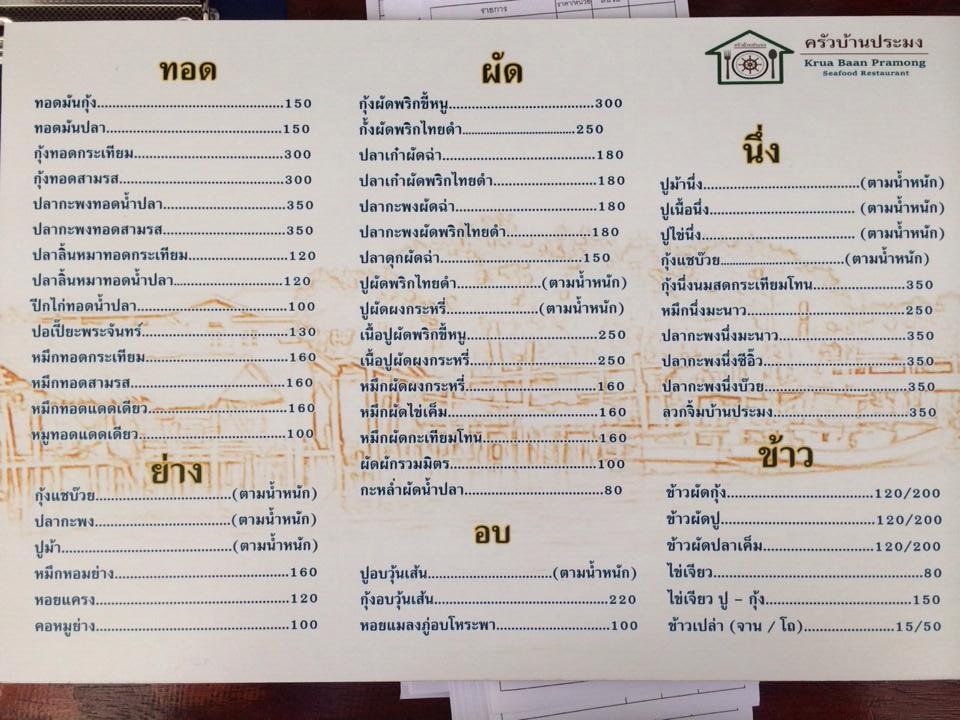 รายการ
ครัวบ้านประมง
Krua Baan Pramong
Seafood Restaurant
ทอด
ทอดมันกุ้ง 150
ทอดมันปลา 150
กุ้งทอดกระเทียม 300
กุ้งทอดสามรส 300
ปลากะพงทอดน้ำปลา 350
ปลากะพงทอดสามรส 350
ปลาลิ้นหมาทอดกระเทียม 120
ปลาลิ้นหมาทอดน้ำปลา 120
ปีกไก่ทอดน้ำปลา 100
ปอเปี๊ยะพระจันทร์ 130
หมึกทอดกระเทียม 160
หมึกทอดสามรส 160
หมึกทอดแดดเดียว 160
หมูทอดแดดเดียว 100
ย่าง
กุ้งแชบ๊วย (ตามน้ำหนัก)
ปลากะพง (ตามน้ำหนัก)
ปูม้า (ตามน้ำหนัก)
หมึกหอมย่าง 160
หอยแครง 120
คอหมูย่าง 100
ผัด
กุ้งผัดพริกขี้หนู 300
กั้งผัดพริกไทยดำ 250
ปลาเก๋าผัดฉ่า 180
ปลาเก๋าผัดพริกไทยดำ 180
ปลากะพงผัดฉ่า 180
ปลากะพงผัดพริกไทยดำ 180
ปลาดุกผัดฉ่า 150
ปูผัดพริกไทยดำ (ตามน้ำหนัก)
ปูผัดผงกระหรี่ (ตามน้ำหนัก)
เนื้อปูผัดพริกขี้หนู 250
เนื้อปูผัดผงกระหรี่ 250
หมึกผัดผงกระหรี่ 160
หมึกผัดไข่เค็ม 160
หมึกผัดกะเทียมโทน 160
ผัดผักรวมมิตร 100
กะหล่ำผัดน้ำปลา 80
อบ
ปูอบวุ้นเส้น (ตามน้ำหนัก)
กุ้งอบวุ้นเส้น 220
หอยแมลงภู่อบโหระพา 100
นึ่ง
ปูม้านึ่ง (ตามน้ำหนัก)
ปูเนื้อนึ่ง (ตามน้ำหนัก)
ปูไข่นึ่ง (ตามน้ำหนัก)
กุ้งแชบ๊วย (ตามน้ำหนัก)
กุ้งนึ่งนมสดกระเทียมโทน 350
หมึกนึ่งมะนาว 250
ปลากะพงนึ่งมะนาว 350
ปลากะพงนึ่งซีอิ๊ว 350
ปลากะพงนึ่งบ๊วย 350
ลวกจิ้มบ้านประมง 350
ข้าว
ข้าวผัดกุ้ง 120/200
ข้าวผัดปู 120/200
ข้าวผัดปลาเค็ม 120/200
ไข่เจียว 80
ไข่เจียว ปู - กุ้ง 150
ข้าวเปล่า (จาน / โถ) 15/50